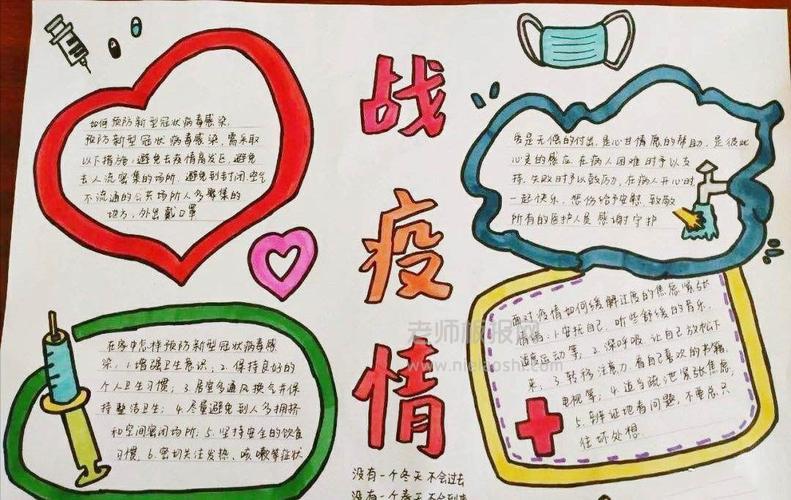 战
疫
情
如何预防新型冠状病毒感染
预防新型冠状病毒感染,需采取
以下措施:避免去疫情高发区,避免
去人流密集的场所,避免到封闭,空气
不流通的公共场所人多聚集的
地方,外出戴口罩
是无偿的付出,是心甘情愿的帮助,是彼此
心灵的感应在病人困难时予以支
持,失败时予以鼓历,在病人开心时
一起快乐,悲伤给予安慰,致敬
所有的医护人员感谢守护
在家中怎样预防新型冠状病毒感
染,1.增强卫生意识,2.保持良好的
个人卫生习惯;3.居室多通风换气并保
持整洁卫生;4.尽量避免到人多拥挤
和空间密闭场所;5.坚持安全的饮食
习惯,6.密切关注发热、咳嗽等症状
面对疫情如何缓解过度的焦虑紧张
情绪:1.安抚自己,听些舒缓的音乐,
适度运动等,2.深呼吸,让自己放松下
来,3.转移注意力看自己喜欢的书籍,
电视等,4.适当疏泄紧张焦虑,
5.辩证地看问题,不要总只
往坏处想
老师板报网
没有一个冬天不会过去
没有一个春天不会到来